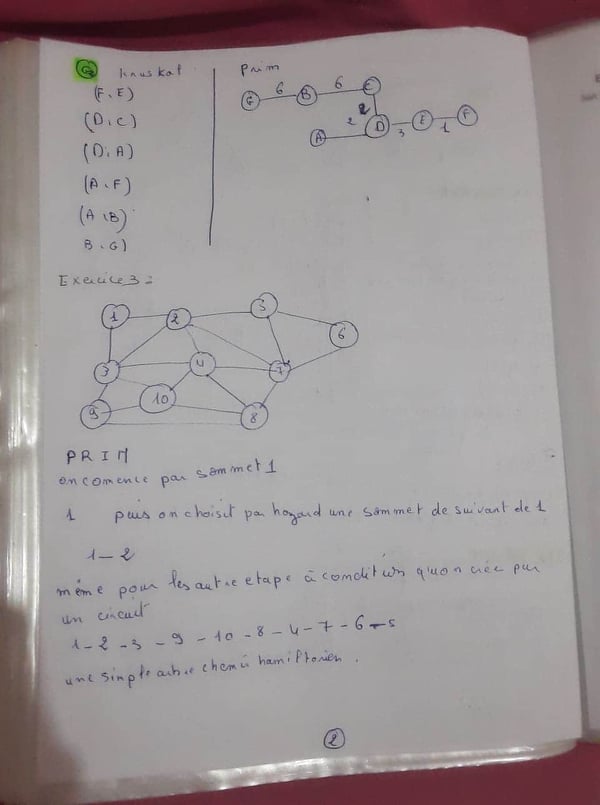 G kruskal
(F, E)
(D, C)
(D, A)
(A, F)
(A, B)
B, G)
Prim
G 6 B 6 C
2
A 2 D 3 E 1 F
Exercice 3 :
1 2 5
6
3 4 7
9 10 8
PRIM
on comence par sommet 1
1 puis on choisit par hazard une sommet de suivant de 1
1 - 2
même pour les autre etape à condition qu'on crée pas
un circuit
1 - 2 - 3 - 9 - 10 - 8 - 4 - 7 - 6 - 5
une simple arbre chemin hamiltonien.
2